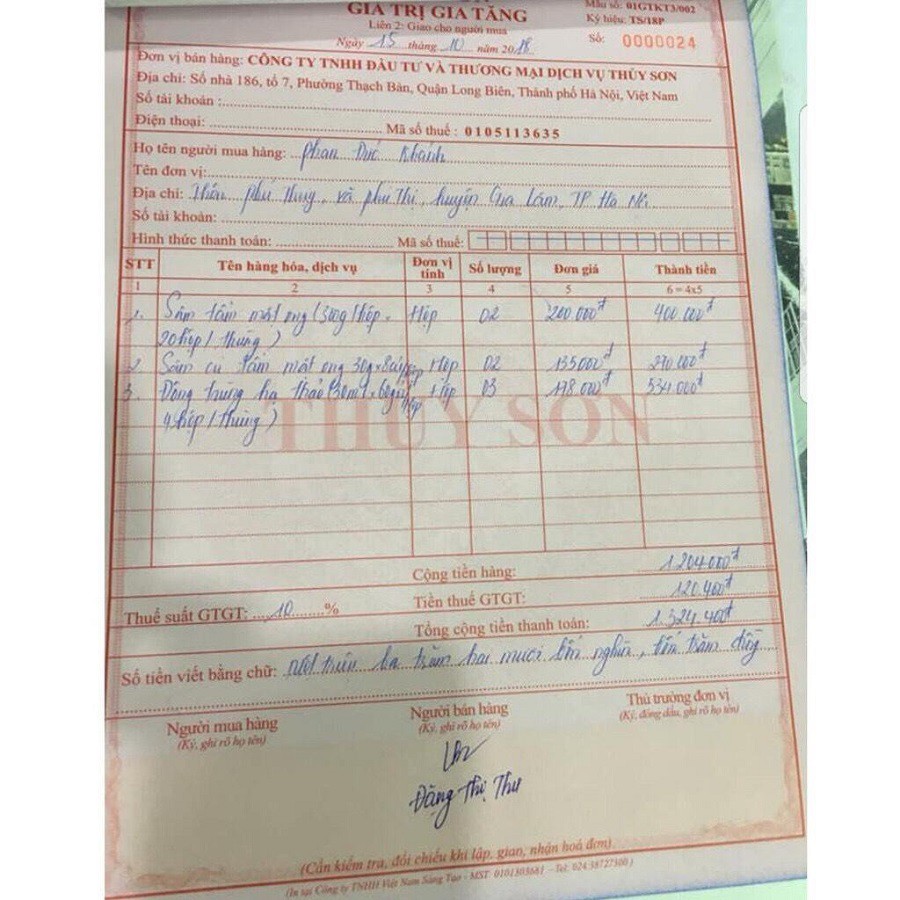 GIÁ TRỊ GIA TĂNG
Mẫu số: 01GTKT3/002
Liên 2: Giao cho người mua
Ký hiệu: TS/18P
Ngày 15 tháng 10 năm 2018
Số: 0000024
Đơn vị bán hàng: CÔNG TY TNHH ĐẦU TƯ VÀ THƯƠNG MẠI DỊCH VỤ THỦY SƠN
Địa chỉ: Số nhà 186, tổ 7, Phường Thạch Bàn, Quận Long Biên, Thành phố Hà Nội, Việt Nam
Số tài khoản :
Điện thoại: Mã số thuế : 0105113635
Họ tên người mua hàng: Phan Đức Khánh
Tên đơn vị:
Địa chỉ: Thôn phú thụy, xã phú Thị, huyện Gia Lâm, TP Hà Nội
Số tài khoản:
Hình thức thanh toán: Mã số thuế:
STT Tên hàng hóa, dịch vụ Đơn vị tính Số lượng Đơn giá Thành tiền
1 2 3 4 5 6 = 4x5
1. Sâm tẩm mật ong (300g/hộp, Hộp 02 200.000đ 400.000đ
20hộp/thùng)
2. Sâm củ tẩm mật ong 30g x 8 Hộp 02 135000đ 270.000đ
3. Đông trùng hạ thảo (30ml x 60gói/hộp Hộp 03 178.000đ 534.000đ
4hộp/thùng)
THỦY SƠN
Cộng tiền hàng: 1.204.000đ
Thuế suất GTGT: 10 % Tiền thuế GTGT: 120.400đ
Tổng cộng tiền thanh toán: 1.324.400đ
Số tiền viết bằng chữ: Một triệu ba trăm hai mươi bốn nghìn, bốn trăm đồng
Người mua hàng Người bán hàng Thủ trưởng đơn vị
(Ký, ghi rõ họ tên) (Ký, ghi rõ họ tên) (Ký, đóng dấu, ghi rõ họ tên)
Đặng Thị Thư
(Cần kiểm tra, đối chiếu khi lập, giao, nhận hoá đơn)
(In tại Công ty TNHH Việt Nam Sáng Tạo - MST: 0101303661 - Tel: 024.38727300)